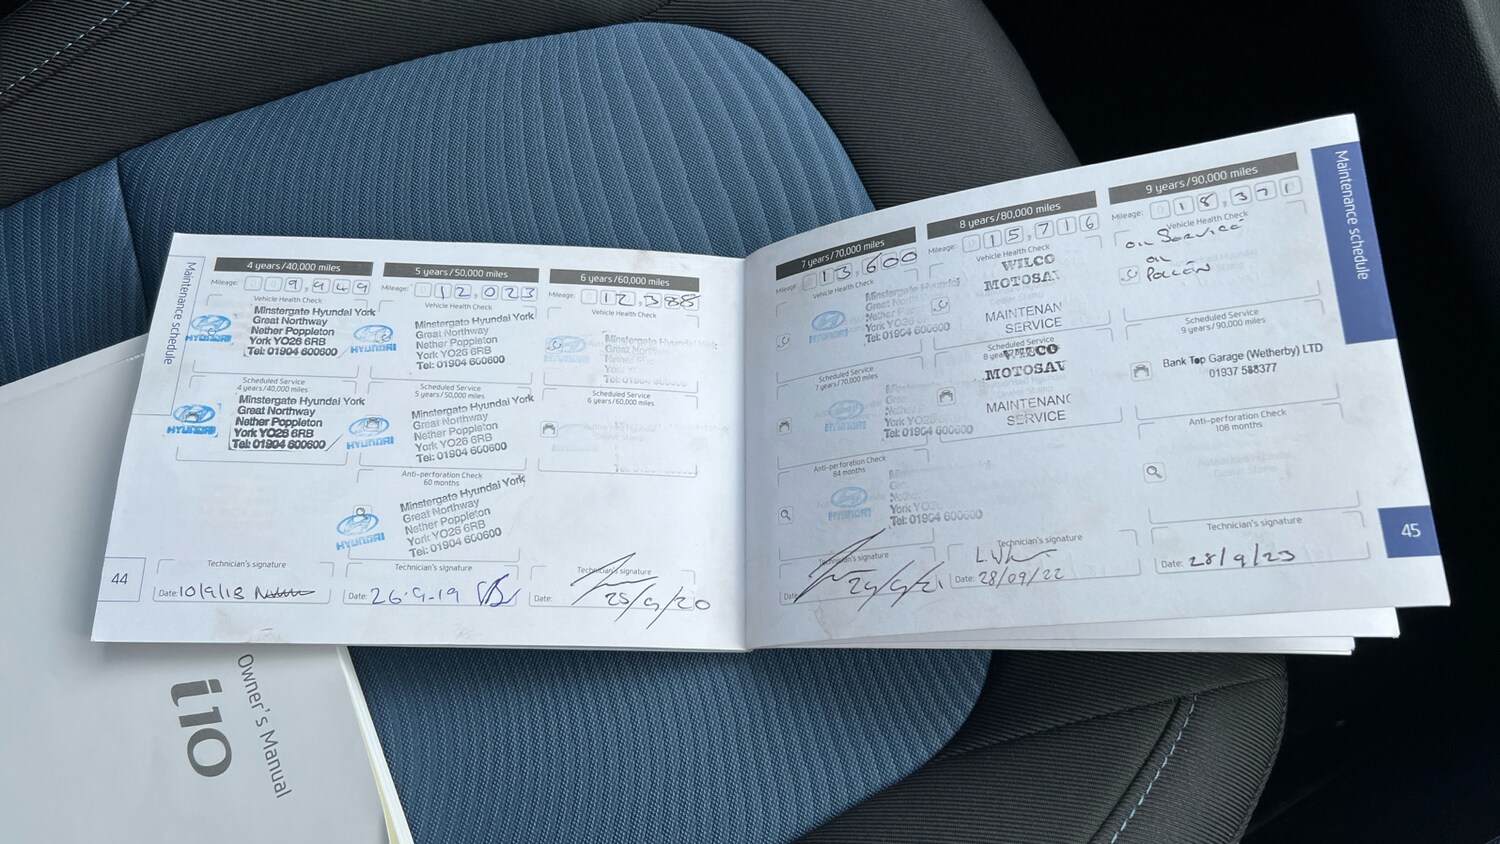 Maintenance schedule
4 years/40,000 miles
Mileage: 09,949
Vehicle Health Check
HYUNDAI
Minstergate Hyundai York
Great Northway
Nether Poppleton
York YO26 6RB
Tel: 01904 600600
Scheduled Service
4 years/40,000 miles
HYUNDAI
Minstergate Hyundai York
Great Northway
Nether Poppleton
York YO26 6RB
Tel: 01904 600600
Technician's signature
Date: 10/9/18
44
5 years/50,000 miles
Mileage: 12,023
Vehicle Health Check
HYUNDAI
Minstergate Hyundai York
Great Northway
Nether Poppleton
York YO26 6RB
Tel: 01904 600600
Scheduled Service
5 years/50,000 miles
HYUNDAI
Minstergate Hyundai York
Great Northway
Nether Poppleton
York YO26 6RB
Tel: 01904 600600
Anti-perforation Check
60 months
HYUNDAI
Minstergate Hyundai York
Great Northway
Nether Poppleton
York YO26 6RB
Tel: 01904 600600
Technician's signature
Date: 26.9.19
6 years/60,000 miles
Mileage: 12,388
Vehicle Health Check
Scheduled Service
6 years/60,000 miles
Technician's signature
Date: 25/9/20
7 years/70,000 miles
Mileage: 13,600
Vehicle Health Check
HYUNDAI
Minstergate Hyundai
Great
Nether
York YO26
Tel: 01904 600600
Scheduled Service
7 years/70,000 miles
HYUNDAI
Great
York YO26
Tel: 01904 600600
Anti-perforation Check
84 months
HYUNDAI
York YO26
Tel: 01904 600600
Technician's signature
Date: 24/9/21
8 years/80,000 miles
Mileage: 15,716
Vehicle Health Check
WILCO
MOTOSAV
MAINTENANC
SERVICE
Scheduled Service
8 years
WILCO
MOTOSAV
MAINTENANC
SERVICE
Technician's signature
Date: 28/09/22
9 years/90,000 miles
Mileage: 18,371
Vehicle Health Check
oil Service
oil
Pollen
Scheduled Service
9 years/90,000 miles
Bank Top Garage (Wetherby) LTD
01937 588377
Anti-perforation Check
108 months
Technician's signature
Date: 28/9/23
Maintenance schedule
45
Owner's Manual
i10